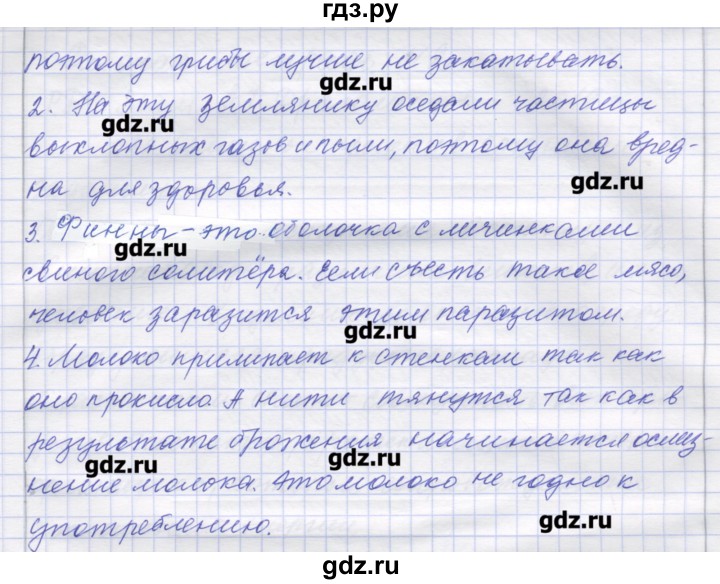 гдз.ру
поэтому грибы лучше не закатывать.
gdz.ru
2. На эту землянику оседали частицы
gdz.ru
выхлопных газов и пыли, поэтому она вред-
на для здоровья.
gdz.ru
3. Финны - это оболочка с личинками
gdz.ru
свиного солитёра. Если съесть такое мясо,
человек заразится этим паразитом.
gdz.ru
4. Молоко прилипает к стенкам так как
оно прокисло. А нити тянутся так как в
результате брожения начинается ослиз-
gdz.ru
gdz.ru
нение молока. Это молоко не годно к
употреблению.
gdz.ru
gdz.ru